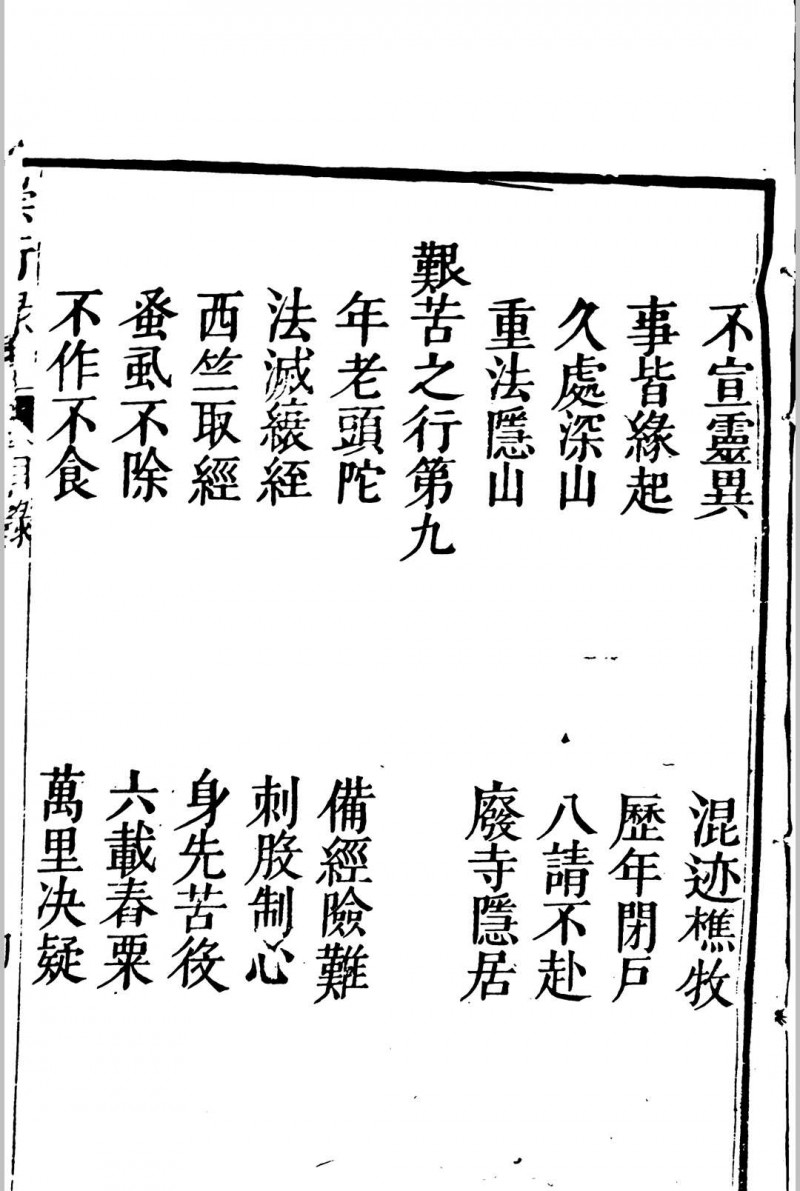 不宣靈異　混迹樵牧
事皆緣起　歷年閉戸
久處深山　八請不赴
重法隱山　廢寺隱居
艱苦之行第九
年老頭陀　備經險難
法滅縗絰　刺股制心
西竺取經　身先苦役
蚤虱不除　六載舂粟
不作不食　萬里决疑
行 目錄